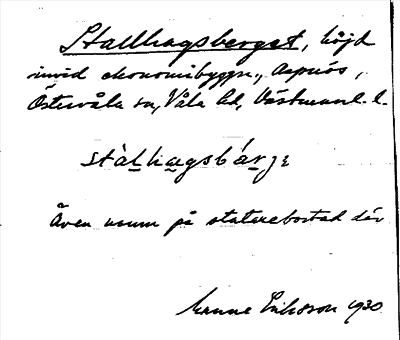 Stallhagsberget, höjd
invid ekonomibyggn., Aspnäs,
Östervåla sn, Våla hd, Västmanl. l.
stàl̠hæ̠gsbár̠jɛ
Även namn på statarebostad där
Manne Eriksson 1930